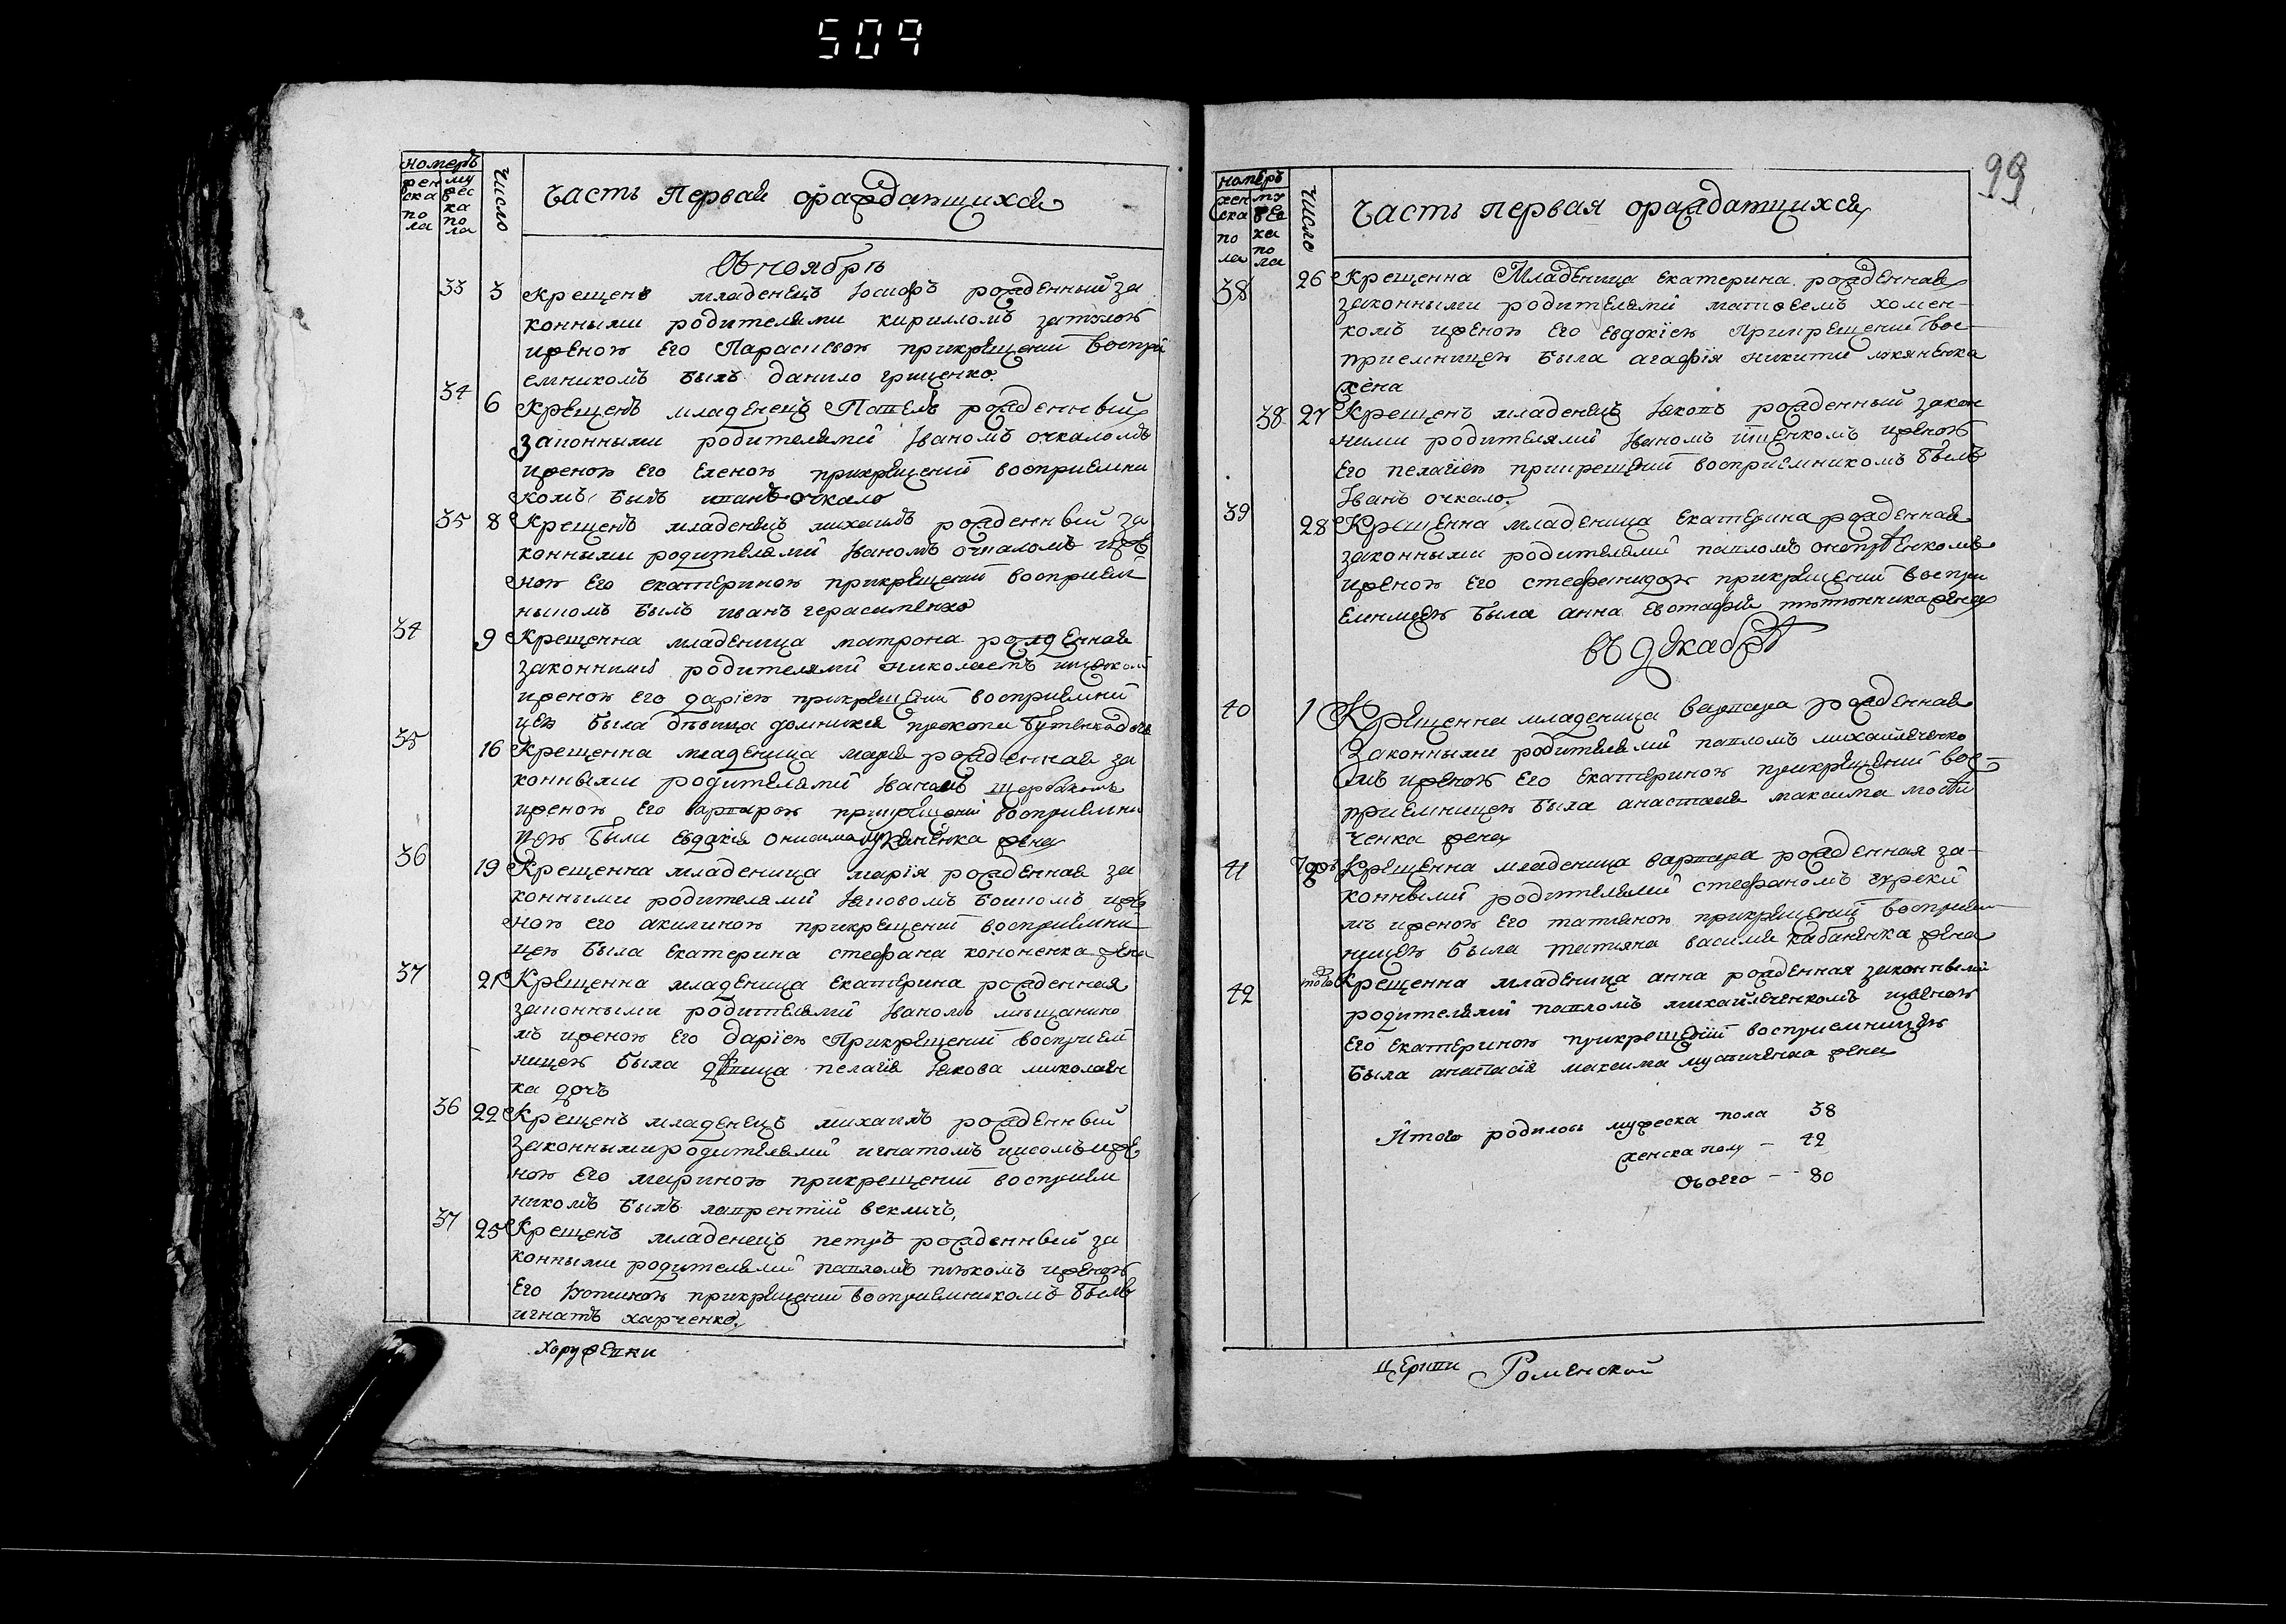 509
номеръ
жен
ска
по
ла
му
жес
ка
по
ла
число
часть первая ораждающихся
Въ ноябрѣ
33 3 Крещенъ младенецъ Іосифъ рожденный за
конными родителями кирилломъ
иженою его Парасковою прикрещеніи воспрі
емникомъ былъ данило гриценко
34 6 Крещенъ младенецъ Павелъ рожденный
законными родителями Іваномъ очкаломъ
иженою его еленою прикрещеніи восприемни
комъ былъ иванъ очкало
35 8 Крещенъ младенецъ михаилъ рожденный за
конными родителями Іваномъ очкаломъ иже
ною его екатериною прикрещеніи восприем
никомъ былъ иванъ герасименко
34 9 Крещенна младеница матрона рожденная
законними родителями николаемъ
иженою его даріею прикрещеніи восприемни
цею была дѣвица домникія прокопи бутенка дочь
35 16 Крещенна младеница марія рожденная за
конными родителями Іваномъ щербакомъ
иженою его варварою прикрещеніи восприемни
цею были евдакія онисима жена
36 19 Крещенна младеница марія рожденная за
конными родителями Іаковомъ иже
ною его акилиною прикрещеніи восприемни
цею была екатерина стефана кононенка жена
37 21 Крещенна младеница екатерина рожденная
законными родителями Іваномъ мищанино
мъ иженою его даріею Прикрещеніи восприем
ницею была дѣвица пелагія Іакова миколаен
ка дочъ
36 22 Крещенъ младенецъ михаилъ рожденный
законными родителями игнатомъ иже
ною его мариною прикрещеніи восприем
никомъ былъ лаврентій векличъ
37 25 Крещенъ младенецъ петръ рожденный за
конными родителями павломъ иженою
его прикрещеніи восприемникомъ былъ
игнатъ харченко
Хоружевки
99
номеръ
жен
ска
по
ла
му
жес
ка
по
ла
число
часть первая ораждающихся
38 26 Крещенна Младеница екатерина рожденная
законными родителями матвеемъ хомен-
комъ иженою его евдокіею прикрещеніи вос-
приемницею была агафія никити лукяненка
жена
38 27 Крещенъ младенецъ Іаковъ рожденный закон
ними родителями Іваномъ иженою
его пелагіею прикрещеніи восприемникомъ былъ
Іванъ очкало.
39 28 Крещенна младеница екатерина рожденная
законными родителями павломъ онопрѣенкомъ
иженою его стефанидою прикрещеніи воспри
емницею была анна евстафія жена
въ декабрѣ
40 1 Крещенна младеница варвара рожденная
законными родителями павломъ михайличенко
мъ иженою его екатериною прикрещеніи вос-
приемницею была анастасія максима мости
ченка жена
41 Крещенна младеница варвара рожденная за-
конными родителями стефаномъ
мъ иженою его татяною прикрещеніи восприем
ницею была татяна василия кабаненка жена
42 Крещенна младеница анна рожденная законными
родителями павломъ михайличенкомъ иженою
его екатериною прикрещеніи восприемницею
была анастасія максима мустиченка жена
Итого родилось мужеска пола 38
женска полу – 42
Обоего – 80
церкви Роменской